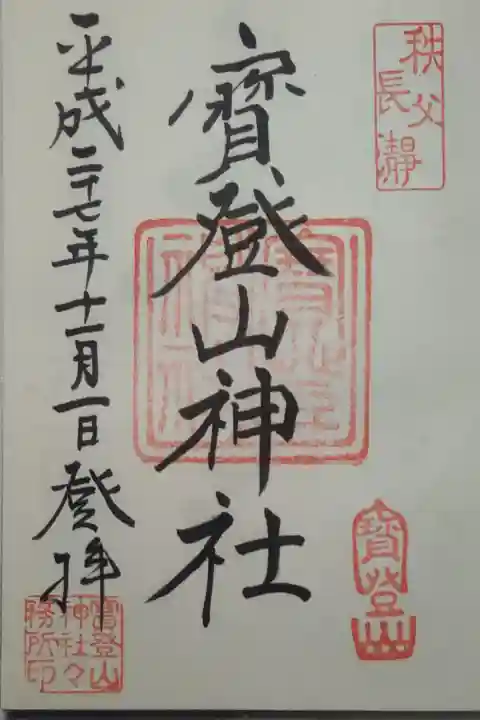 秩父
長瀞
寳登山神社
寳登山
平成二十七年十一月一日登拝
寳登山
神社々
務所印